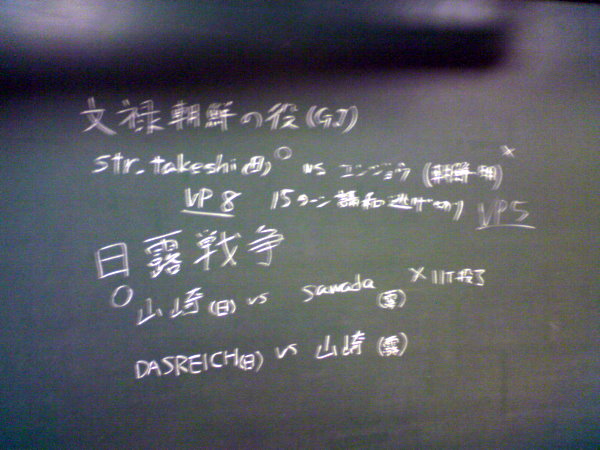 文禄朝鮮の役(GJ)
str.takeshi(日)○ vs エンジョウ(朝鮮・明)×
VP8 15ターン講和逃げ切り VP5
日露戦争
○山崎(日) vs sawada(露)×11T投了
DASREICH(日) vs 山崎(露)